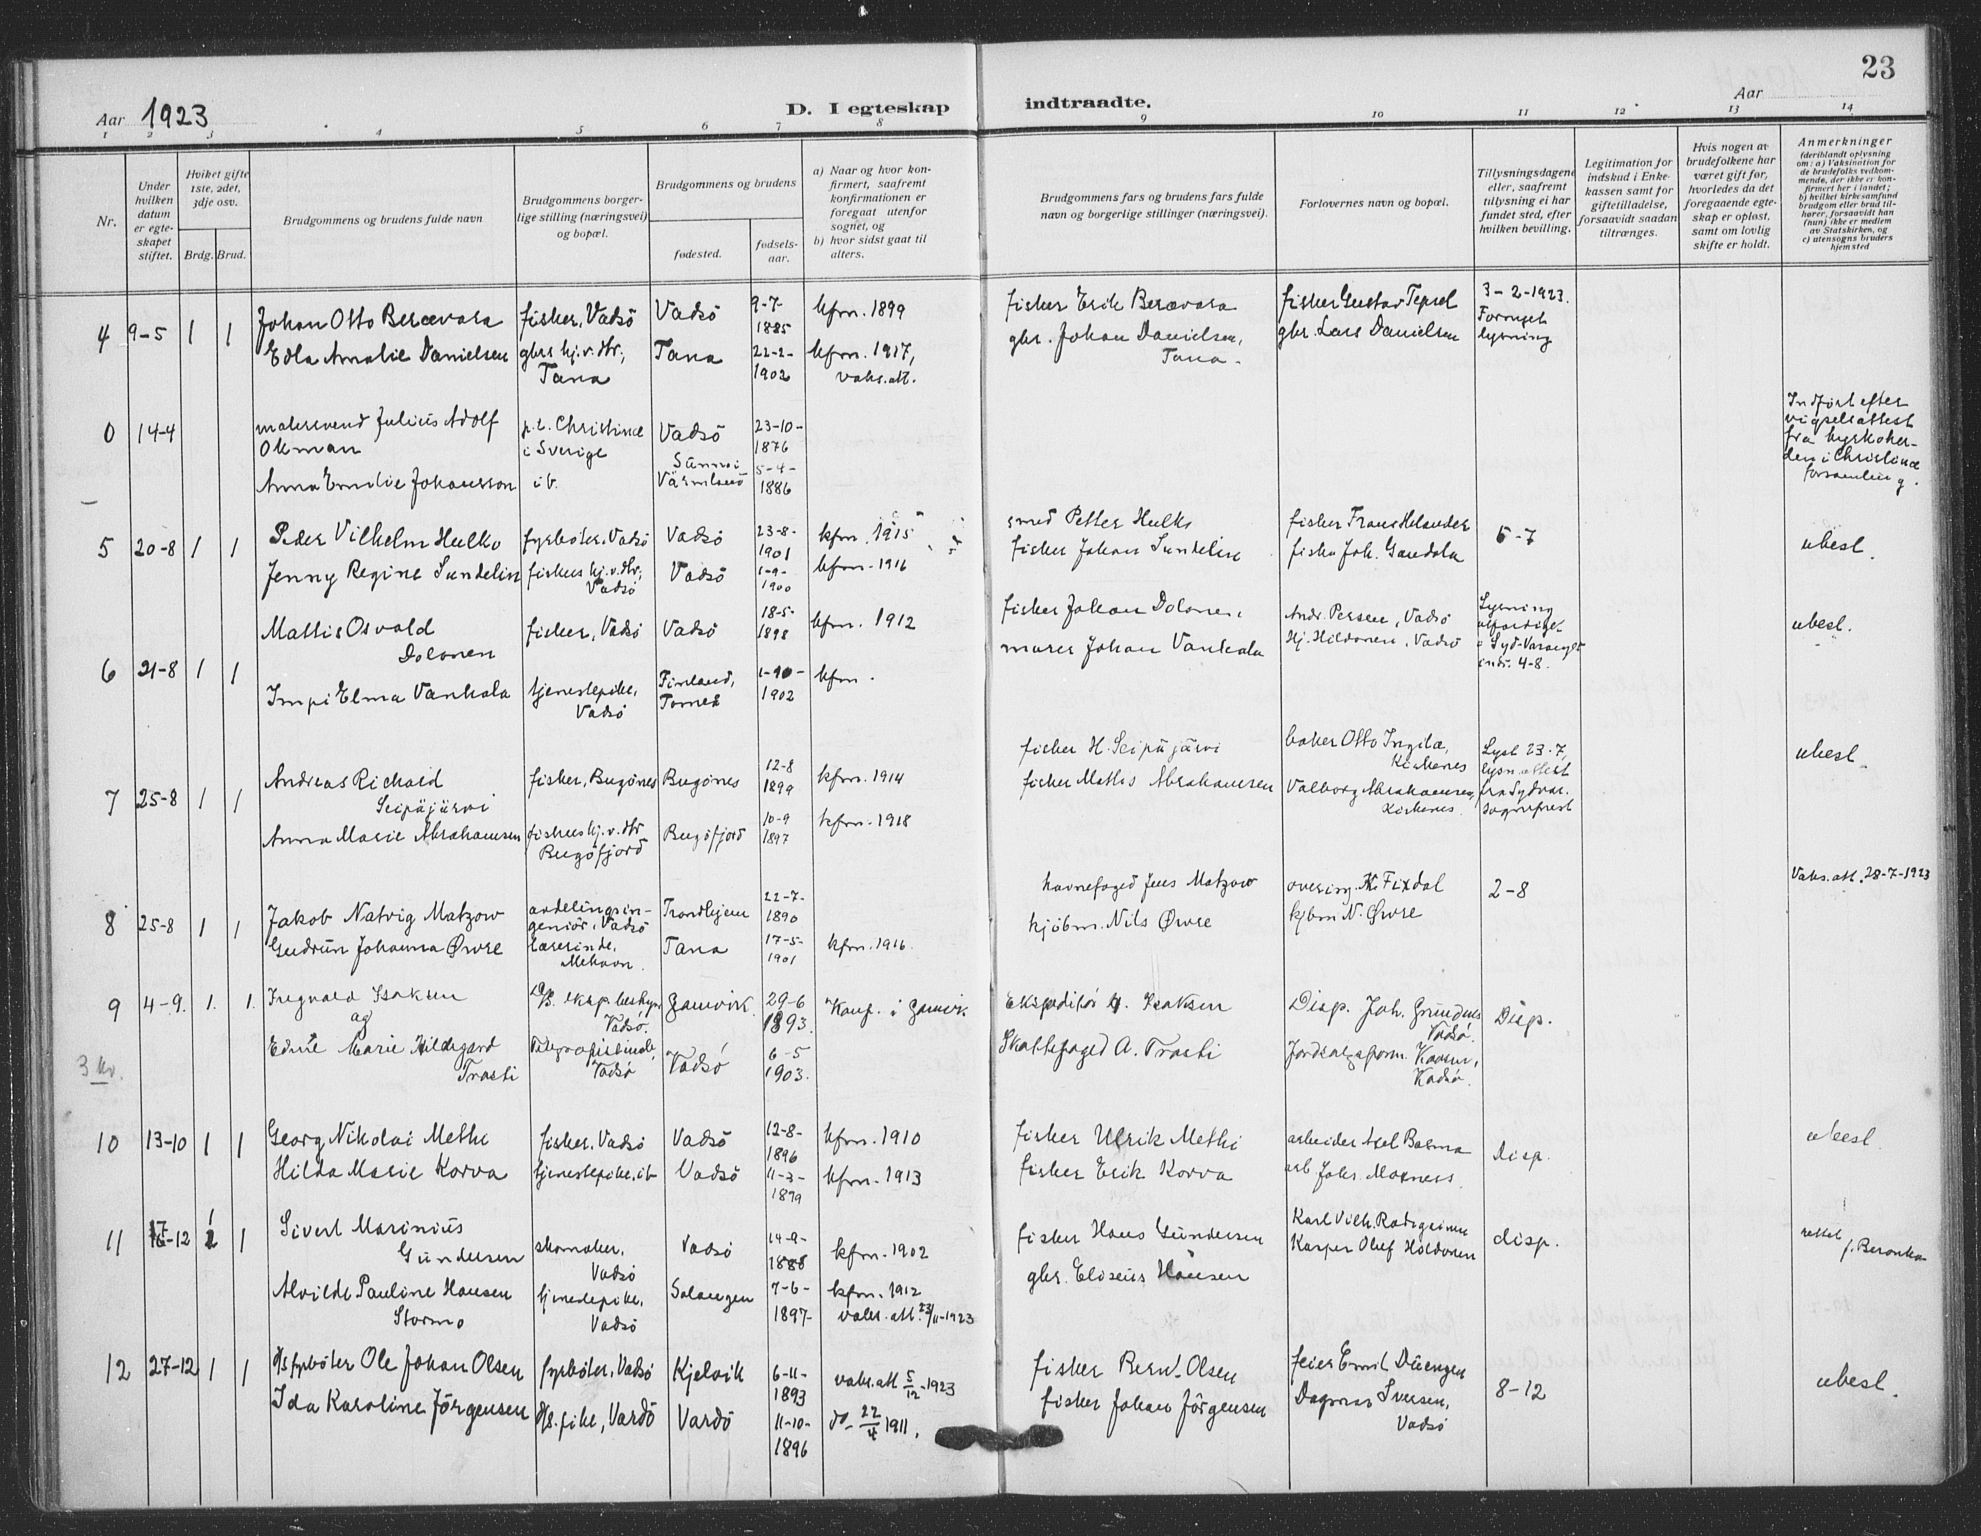 23
Aar 1923
D. I egteskap indtraadte.
Aar
1 2 3 4 5 6 7 8 9 10 11 12 13 14
Nr.
Under hvilken datum er egteskapet stiftet.
Hviket gifte 1ste, 2det, 3dje osv.
Brdg. Brud.
Brudgommens og brudens fulde navn
Brudgommens borgerlige stilling (næringsvei) og bopæl.
Brudgommens og brudens
fødested.
fødselsaar.
a) Naar og hvor konfirmert, saafremt konfirmationen er foregaat utenfor sognet, og
b) hvor sidst gaat til alters.
Brudgommens fars og brudens fars fulde navn og borgerlige stillinger (næringsvei).
Forlovernes navn og bopæl.
Tillysningsdagene eller, saafremt tillysning ei har fundet sted, efter hvilken bevilling.
Legitimation for indskud i Enkekassen samt for giftetilladelse, forsaavidt saadan tiltrænges.
Hvis nogen av brudefolkene har været gift før, hvorledes da det foregaaende egteskap er opløst, samt om lovlig skifte er holdt.
Anmerkninger (deriblandt oplysning om: a) Vaksination for de brudefolks vedkommende, der ikke er konfirmert her i landet; b) hvilket kirkesamfund brudgom eller brud tilhører, forsaavidt han (hun) ikke er medlem av Statskirken, og c) utensogns bruders hjemsted
4 9-5 1 1 Johan Otto Beræara fisker, Vadsö Vadsö 9-7-1885 kfm. 1899 fisker Erik Beræara fisker Gustav Teprel 3-2-1923. Fornyet lysning
Edla Amalie Danielsen gbrs hj.v.dtr, Tana Tana 22-2-1902 kfm. 1917, vaks.att. gbr. Johan Danielsen, Tana. gbr. Lars Danielsen
0 14-4 malersvend Julius Adolf Okman p.t. Christinæ i Sverige Vadsö 23-10-1876 Indført efter vigselsattest fra kyrkoherden i Christinæ forsamling.
Anna Emilie Johansson ib. Värmland 5-4-1886
5 20-8 1 1 Peder Vilhelm Hulko fyrböter, Vadsö Vadsö 23-8-1901 kfm. 1915 smed Petter Hulko fisker Frans Helander 5-7 ubesl.
Jenny Regine Sundelin fiskers hj.v.dtr, Vadsö Vadsö 1-9-1900 kfm. 1916 fisker Johan Sundelin fisker Joh. Gandola
6 21-8 1 1 Mattis Osvald Dolonen fisker, Vadsö Vadsö 18-5-1898 kfm. 1912 fisker Johan Dolonen, Andr. Persen, Vadsö Lysning Syd-Varanger 4-8. ubesl.
Impi Elma Vankala tjenestepike, Vadsö Finland, Torneå 1902 kfm. murer Johan Vankala Hj. Hildonen, Vadsö
7 25-8 1 1 Andreas Richard Seipäjärvi fisker, Bugönes Bugönes 12-8 1899 kfm. 1914 fisker H. Seipäjärvi baker Otto Ingila, Kirkenes Lyst 23-7, lysn.attest fra Sydvar. sogneprest ubesl.
Anna Marie Abrahamsen fiskers hj.v.dtr Bugöfjord Bugöfjord 10-9 1897 kfm. 1918 fisker Mathis Abrahamsen Valborg Abrahamsen, Kirkenes.
8 25-8 1 1 Jakob Natvig Matzow avdelingsingeniör, Vadsö Trondhjem 22-7-1890 havnefoged Jens Matzow overing. K. Fixdal 2-8 Vaks.att. 28-7-1923
Gudrun Johanna Øwre Lærerinde, Mehavn. Tana 17-5-1901 kfm. 1916. kjöbm. Nils Øwre kjbm N. Øwre
9 4-9. 1. 1. Ingvald Isaksen og Vadsø. Gamvik 29-6 1893. Konf. i Gamvik Ekspeditör Isaksen Disp. Joh. Grundnes Vadsø. Disp.
Edine Marie Hildegard Trasti Telegrafistinde, Vadsø Vadsø 6-5 1903. Skattefoged A. Trasti Jordsalgsform. Vadsø.
3 kr.
10 13-10 1 1 Georg Nikolai Methi fisker, Vadsö Vadsö 12-8-1896 kfm. 1910 fisker Ulrik Methi arbeider Axel Basma disp. ubesl.
Hilda Marie Korva tjenestepike, ib Vadsö 11-3-1899 kfm. 1913 fisker Erik Korva arb. Johs. Moxness.
11 17-12 1 1 Sivert Marinius Gundersen skomaker, Vadsö Vadsö 14-9-1888 kfm. 1902 fisker Hans Gundersen Karl Vilh. Rodegrimm disp. rettet f. Beronka
Alvilde Pauline Hansen Stormo tjenestepike, Vadsö Salangen 7-6-1897- kfm. 1912 vaks.att. 23/11-1923 gbr. Eliseus Hansen Kasper Oluf Holdonen
12 27-12 1 1 fyrböter Ole Johan Olsen fyrböter, Vadsö Kjelvik 6-11-1893 vaks.att 5/12-1923 fisker Bernt Olsen feier Emil Duengen 8-12 ubesl.
Ida Karoline Jörgensen pike, Vardö Vardö 11-10-1896 do- 22/4 1911. fisker Johan Jörgensen Dagmar Iversen, Vadsö